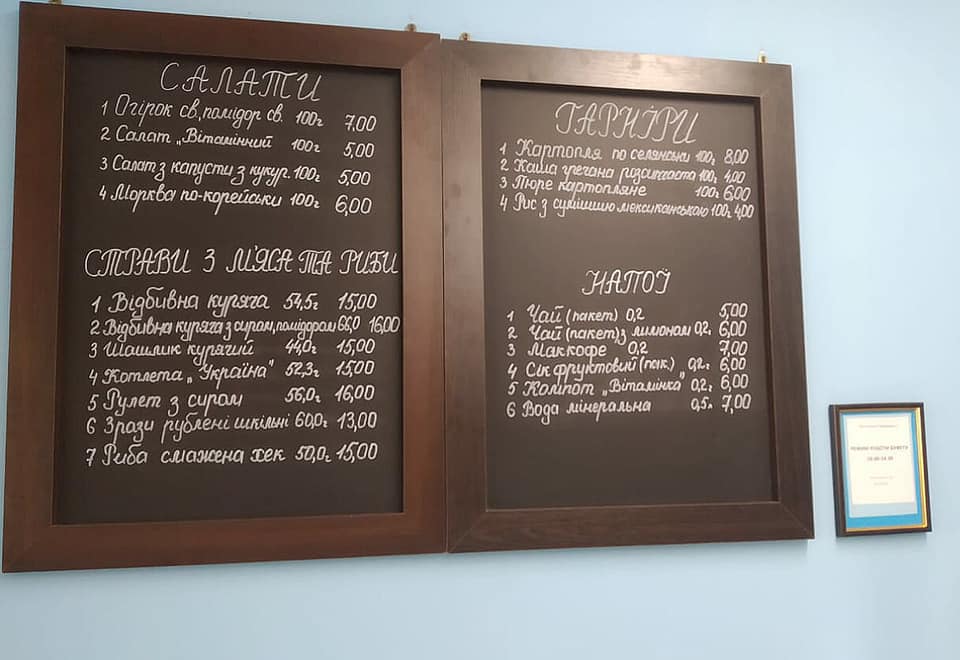 САЛАТИ
1 Огірок св., помідор св. 100г 7,00
2 Салат „Вітамінний" 100г 5,00
3 Салат з капусти з кукур. 100г 5,00
4 Морква по-корейськи 100г 6,00
СТРАВИ З М'ЯСА ТА РИБИ
1 Відбивна куряча 54,5г 15,00
2 Відбивна куряча з сиром, помідором 66,0 16,00
3 Шашлик курячий 44,0г 15,00
4 Котлета „Україна" 52,3г 15,00
5 Рулет з сиром 56,0г 16,00
6 Зрази рублені шкільні 60,0г 13,00
7 Риба смажена хек 50,0г 15,00
ГАРНІРИ
1 Картопля по селянськи 100г 8,00
2 Каша гречана розсипчаста 100г 4,00
3 Пюре картопляне 100г 6,00
4 Рис з сумішшю мексиканською 100г 4,00
НАПОЇ
1 Чай (пакет) 0,2 5,00
2 Чай (пакет) з лимоном 0,2г 6,00
3 Маккофе 0,2 7,00
4 Сік фруктовий (пак.) 0,2г 6,00
5 Компот „Вітамінка" 0,2г 6,00
6 Вода мінеральна 0,5л 7,00
РЕЖИМ РОБОТИ БУФЕТУ